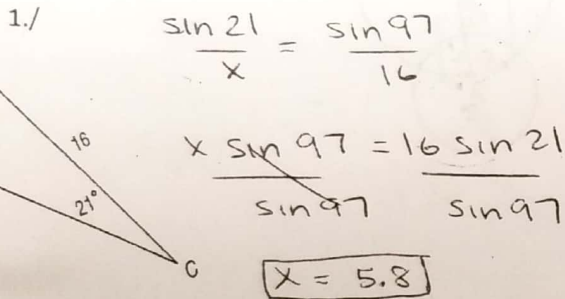 1./
sin 21 / x = sin 97 / 16
16
x sin 97 / sin 97 = 16 sin 21 / sin 97
21°
C
x = 5.8